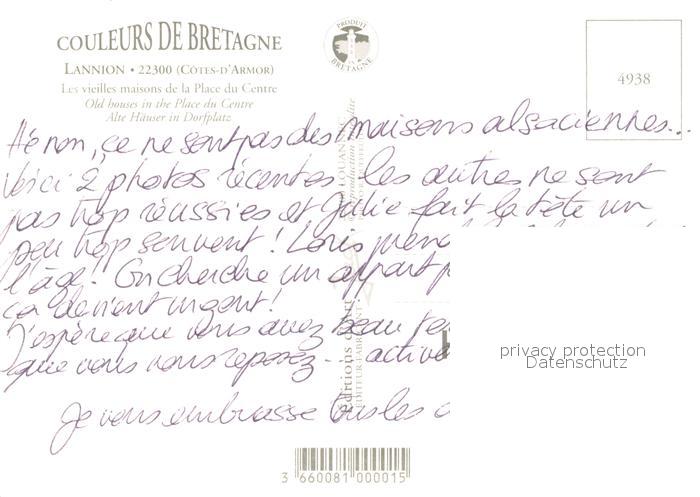 COULEURS DE BRETAGNE
LANNION • 22300 (CÔTES-D'ARMOR)
Les vieilles maisons de la Place du Centre
Old houses in the Place du Centre
Alte Häuser in Dorfplatz
PRODUIT
BRETAGNE
4938
Hé non, ce ne sont pas des maisons alsaciennes...
Voici 2 photos récentes. Les autres ne sont
pas trop réussies et Julie fait la tête un
peu trop souvent ! Loris prend
l'âge ! On cherche un appart
ça devient urgent !
J'espère que vous avez beau
que vous vous reposez...
Je vous embrasse tous les
privacy protection
Datenschutz
3 660081 000015